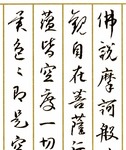 佛說摩訶般
觀自在菩薩行
蘊皆空度一切
異色色即是空